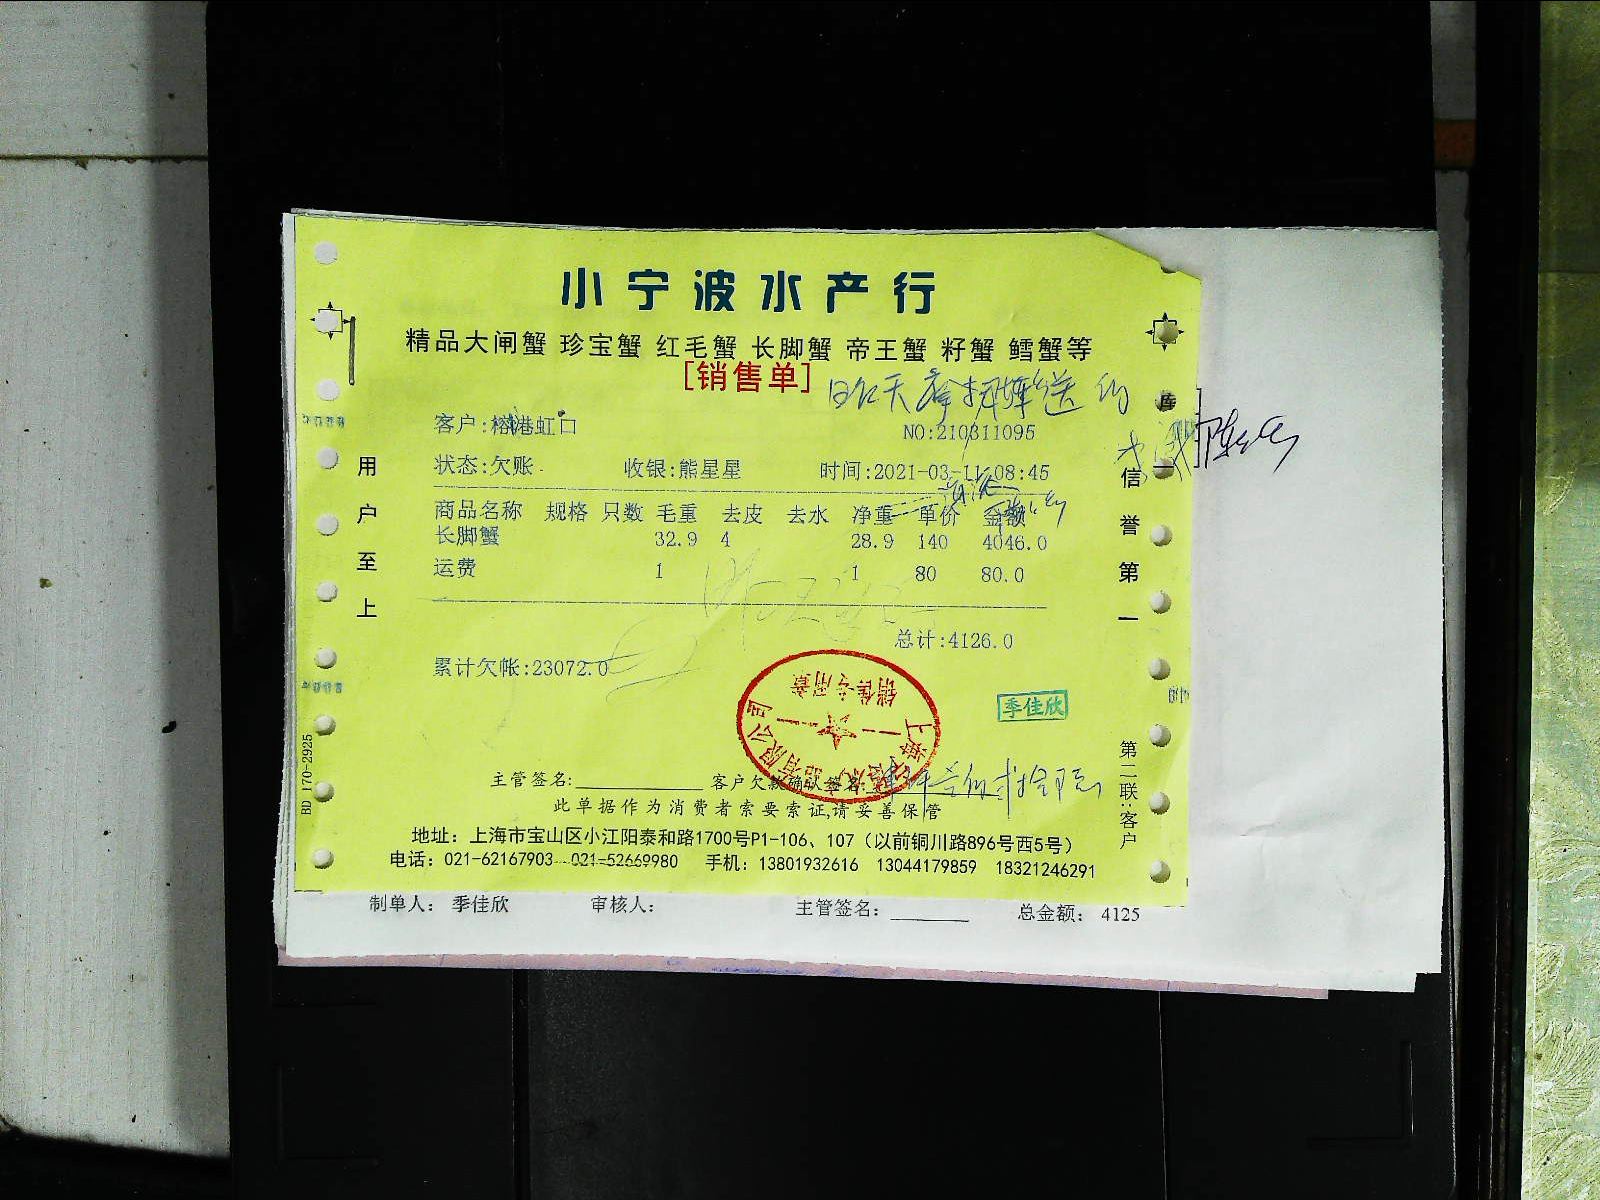 小宁波水产行
精品大闸蟹 珍宝蟹 红毛蟹 长脚蟹 帝王蟹 籽蟹 鳕蟹等
[销售单]
客户:榕港虹口 NO:210311095
状态:欠账 收银:熊星星 时间:2021-03-11 08:45
商品名称 规格 只数 毛重 去皮 去水 净重 单价 金额
长脚蟹 32.9 4 28.9 140 4046.0
运费 1 1 80 80.0
总计:4126.0
累计欠帐:23072.0
用户至上
信誉第一
季佳欣
销售专用章
BD 170-2925
第二联:客户
主管签名: 客户欠款确认签名:
此单据作为消费者索要索证,请妥善保管
地址: 上海市宝山区小江阳泰和路1700号P1-106、107（以前铜川路896号西5号）
电话: 021-62167903 021-52669980 手机: 13801932616 13044179859 18321246291
制单人: 季佳欣 审核人: 主管签名: 总金额: 4125